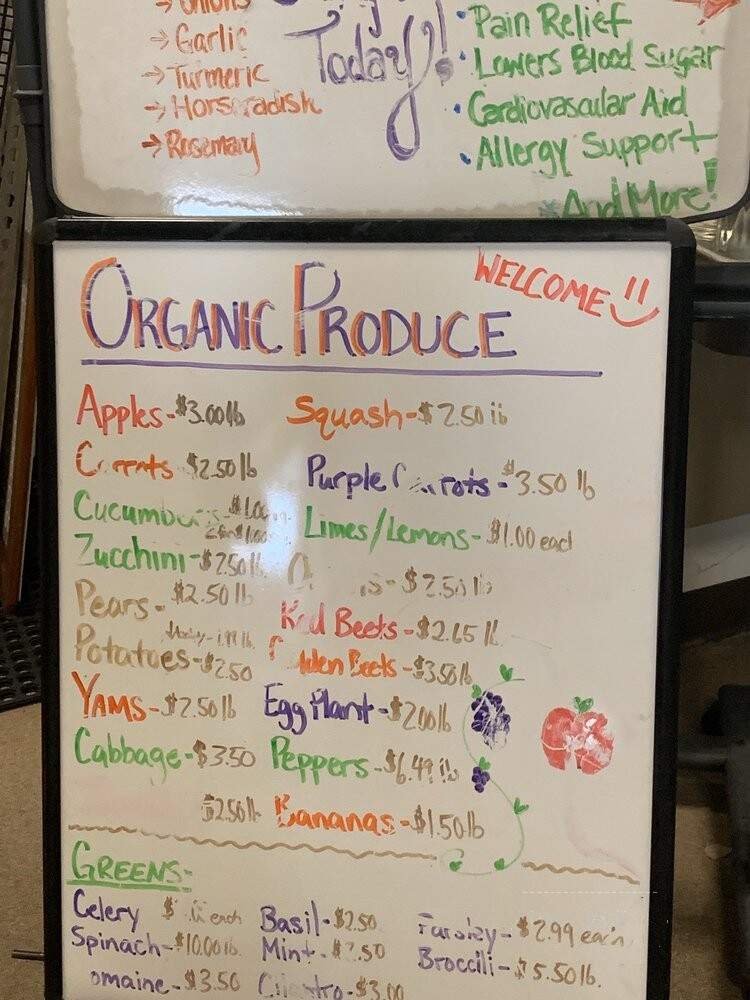 → Onions
→ Garlic
→ Turmeric
→ Horseradish
→ Rosemary
Today!
• Pain Relief
• Lowers Blood Sugar
• Cardiovascular Aid
• Allergy Support
And More!
WELCOME
ORGANIC PRODUCE
Apples - $3.00 lb
Carrots $2.50 lb
Cucumbers $1.00
Zucchini - $2.50 lb
Pears - $2.50 lb
Potatoes - $2.50
YAMS - $2.50 lb
Cabbage - $3.50
$2.50 lb
Squash - $2.50 lb
Purple Carrots - $3.50 lb
Limes/Lemons - $1.00 each
- $2.50 lb
Red Beets - $2.65 lb
Golden Beets - $3.50 lb
Egg Plant - $2.00 lb
Peppers - $6.49 lb
Bananas - $1.50 lb
GREENS:
Celery $ each
Spinach - $10.00 lb
omaine - $3.50
Basil - $2.50
Mint - $2.50
Cilantro - $3.00
Parsley - $2.99 each
Broccili - $5.50 lb.